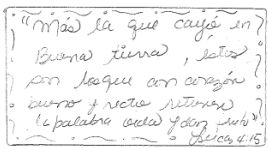 "Más la que cayó en
Buena tierra, éstos
son los que con corazón
bueno y recto retienen
la palabra oida y dan
Lucas 4:15